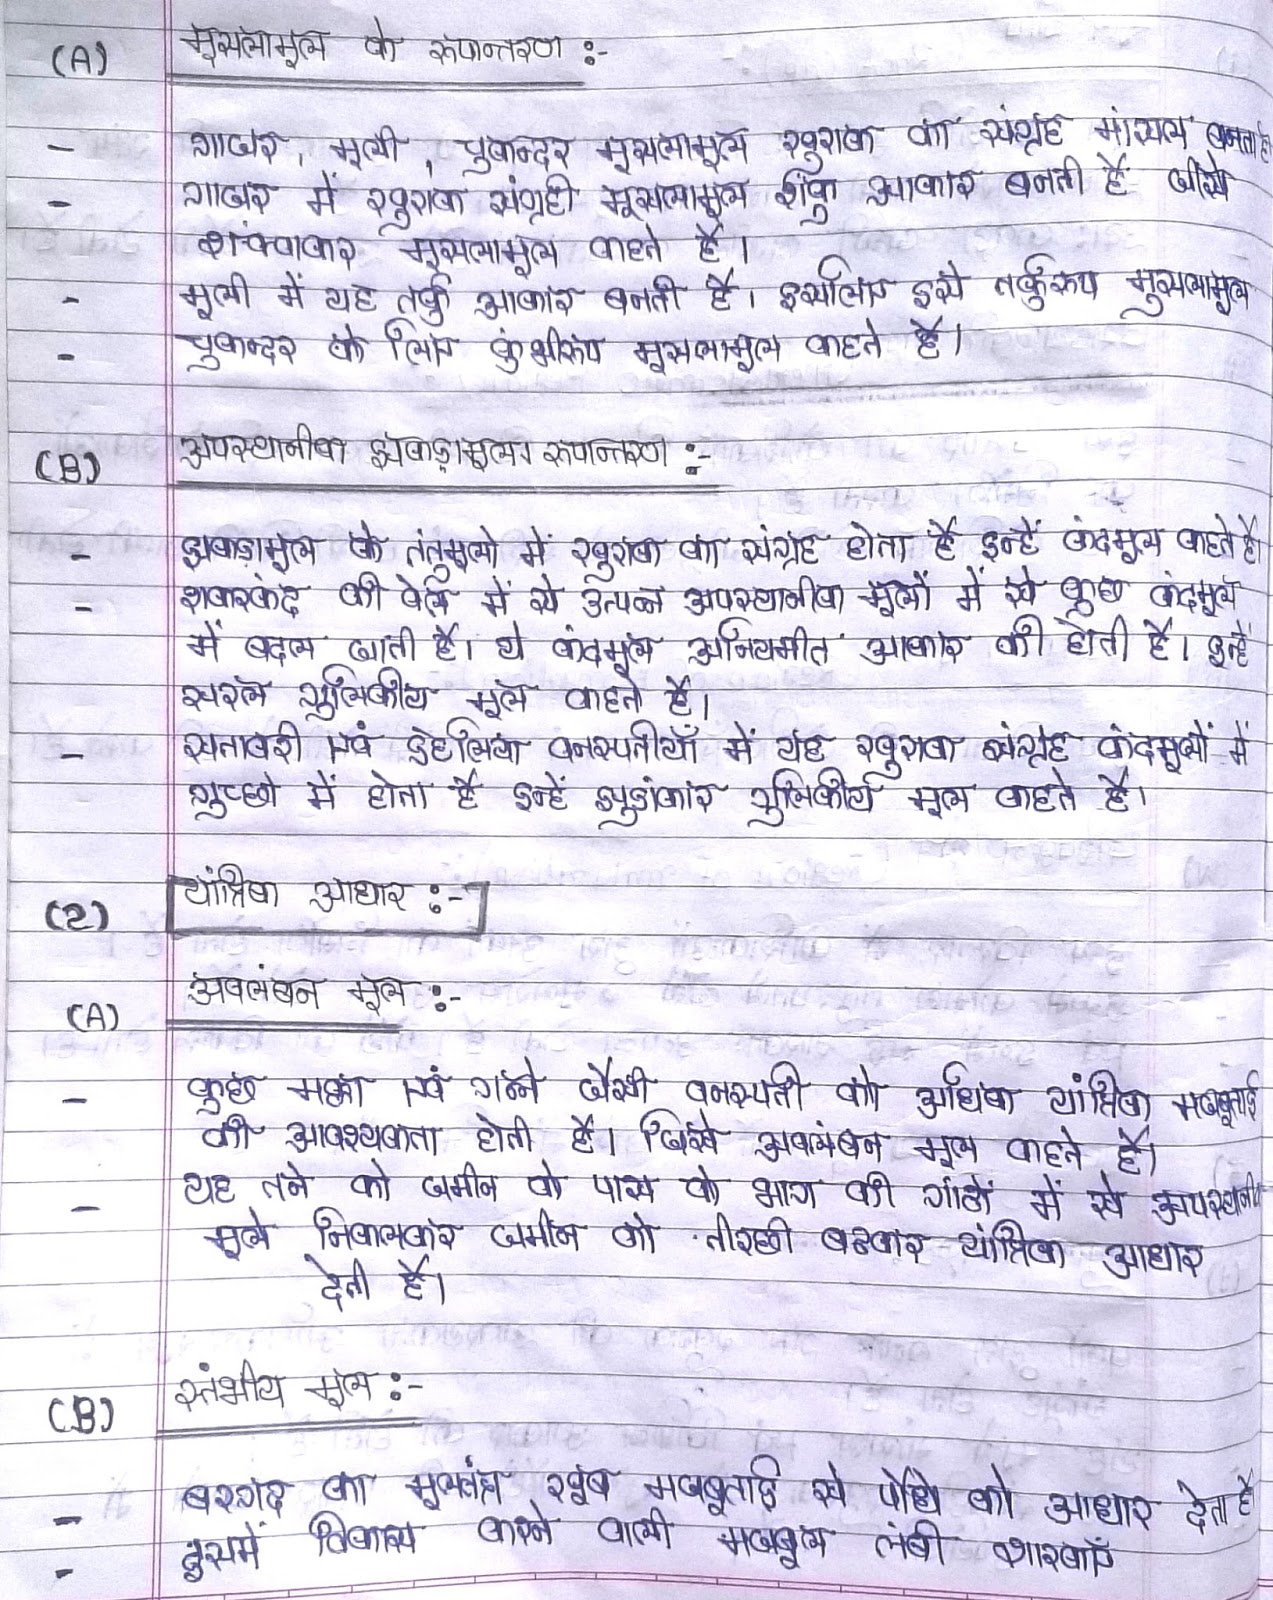 (A) मूसलामूल के रूपान्तरण :-
- गाजर, मूली, चुकन्दर मूसलामूल खुराक का संग्रह मांसल बनता है
- गाजर में खुराक संग्रही मूसलामूल शंकु आकार बनती है जिसे
शंक्वाकार मूसलामूल कहते है।
- मूली में यह तर्कु आकार बनती है। इसलिए इसे तर्कुरूप मुसलामूल
- चुकन्दर के लिए कुंभीरूप मूसलामूल कहते है।
(B) अपस्थानीक झकड़ामूल रूपान्तरण :-
- झकड़ामूल के तंतुमूलो में खुराक का संग्रह होता है इन्हें कंदमूल कहते है।
- शकरकंद की वेल में से उत्पन्न अपस्थानीक मूलों में से कुछ कंदमूल
में बदल जाती है। ये कंदमूल अनियमीत आकार की होती है। इन्हें
सरल गुलिकीय मूल कहते है।
- सतावरी एवं डहेलिया वनस्पतीयाँ में यह खुराक संग्रह कंदमूलों में
गुच्छो में होता है इन्हें गुलिकीय मूल कहते है।
(2) यांत्रिक आधार :-
(A) अवलंबन मूल :-
- कुछ मक्का एवं गन्ने जैसी वनस्पती को अधिक यांत्रिक मजबूताई
की आवश्यकता होती है। जिसे अवलंबन मूल कहते है।
- यह तने को जमीन के पास के भाग की गांठों में से अपस्थानीक
मूले निकालकर जमीन को तीरछी बढकार यांत्रिक आधार
देती है।
(B) स्तंभीय मूल :-
- बरगद का मूलतंत्र खूब मजबूताई से पौधे को आधार देता है
- इसमें विकास करने वाली मजबूल लंबी शाखाएँ